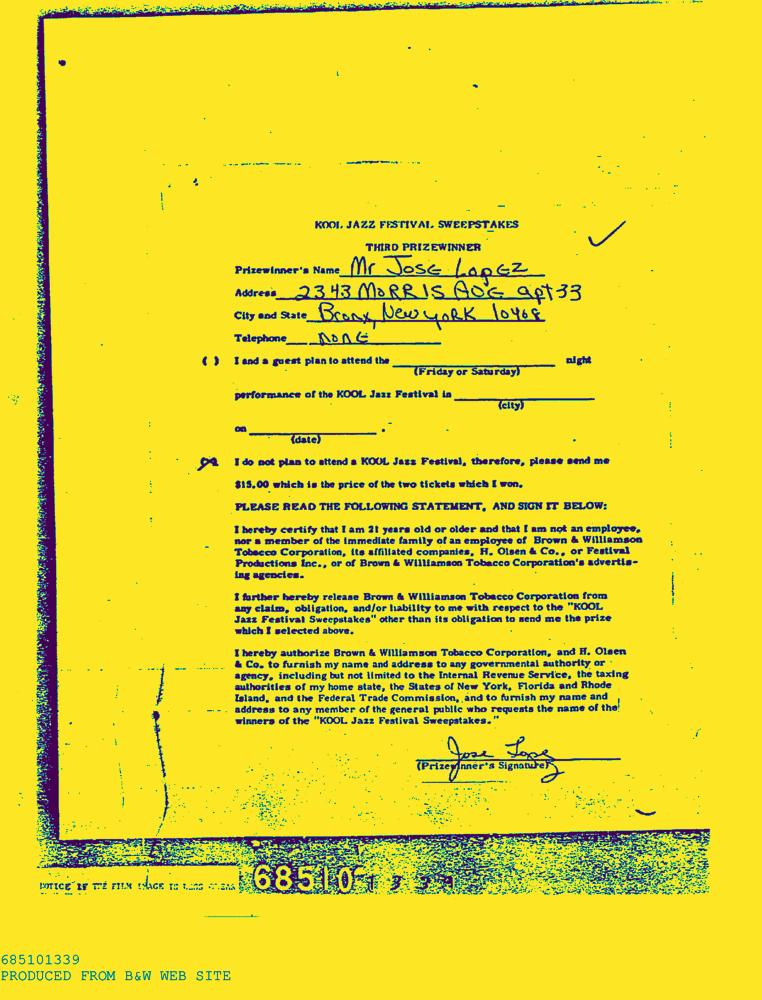 KOOL JAZZ FESTIVAL SWEEPSTAKES
THIRD PRIZEWINNER
Prizewinner's Name Mr JOSE LOPEZ
Address 2343 MORRIS AVE apt 33
City and State Bronx, New york 10468
Telephone NONE
( ) I and a guest plan to attend the ____ night
(Friday or Saturday)
performance of the KOOL Jazz Festival in ____
(city)
on ____.
(date)
I do not plan to attend a KOOL Jazz Festival, therefore, please send me
$15.00 which is the price of the two tickets which I won.
PLEASE READ THE FOLLOWING STATEMENT, AND SIGN IT BELOW:
I hereby certify that I am 21 years old or older and that I am not an employee,
nor a member of the immediate family of an employee of Brown & Williamson
Tobacco Corporation, its affiliated companies, H. Olsen & Co., or Festival
Productions Inc., or of Brown & Williamson Tobacco Corporation's advertis-
ing agencies.
I further hereby release Brown & Williamson Tobacco Corporation from
any claim, obligation, and/or liability to me with respect to the "KOOL
Jazz Festival Sweepstakes" other than its obligation to send me the prize
which I selected above.
I hereby authorize Brown & Williamson Tobacco Corporation, and H. Olsen
& Co. to furnish my name and address to any governmental authority or
agency, including but not limited to the Internal Revenue Service, the taxing
authorities of my home state, the States of New York, Florida and Rhode
Island, and the Federal Trade Commission, and to furnish my name and
address to any member of the general public who requests the name of the
winners of the "KOOL Jazz Festival Sweepstakes."
Jose Lopez
(Prizewinner's Signature)
68510 1339
NOTICE IF THE FILM IMAGE IS LESS CLEAR
685101339
PRODUCED FROM B&W WEB SITE